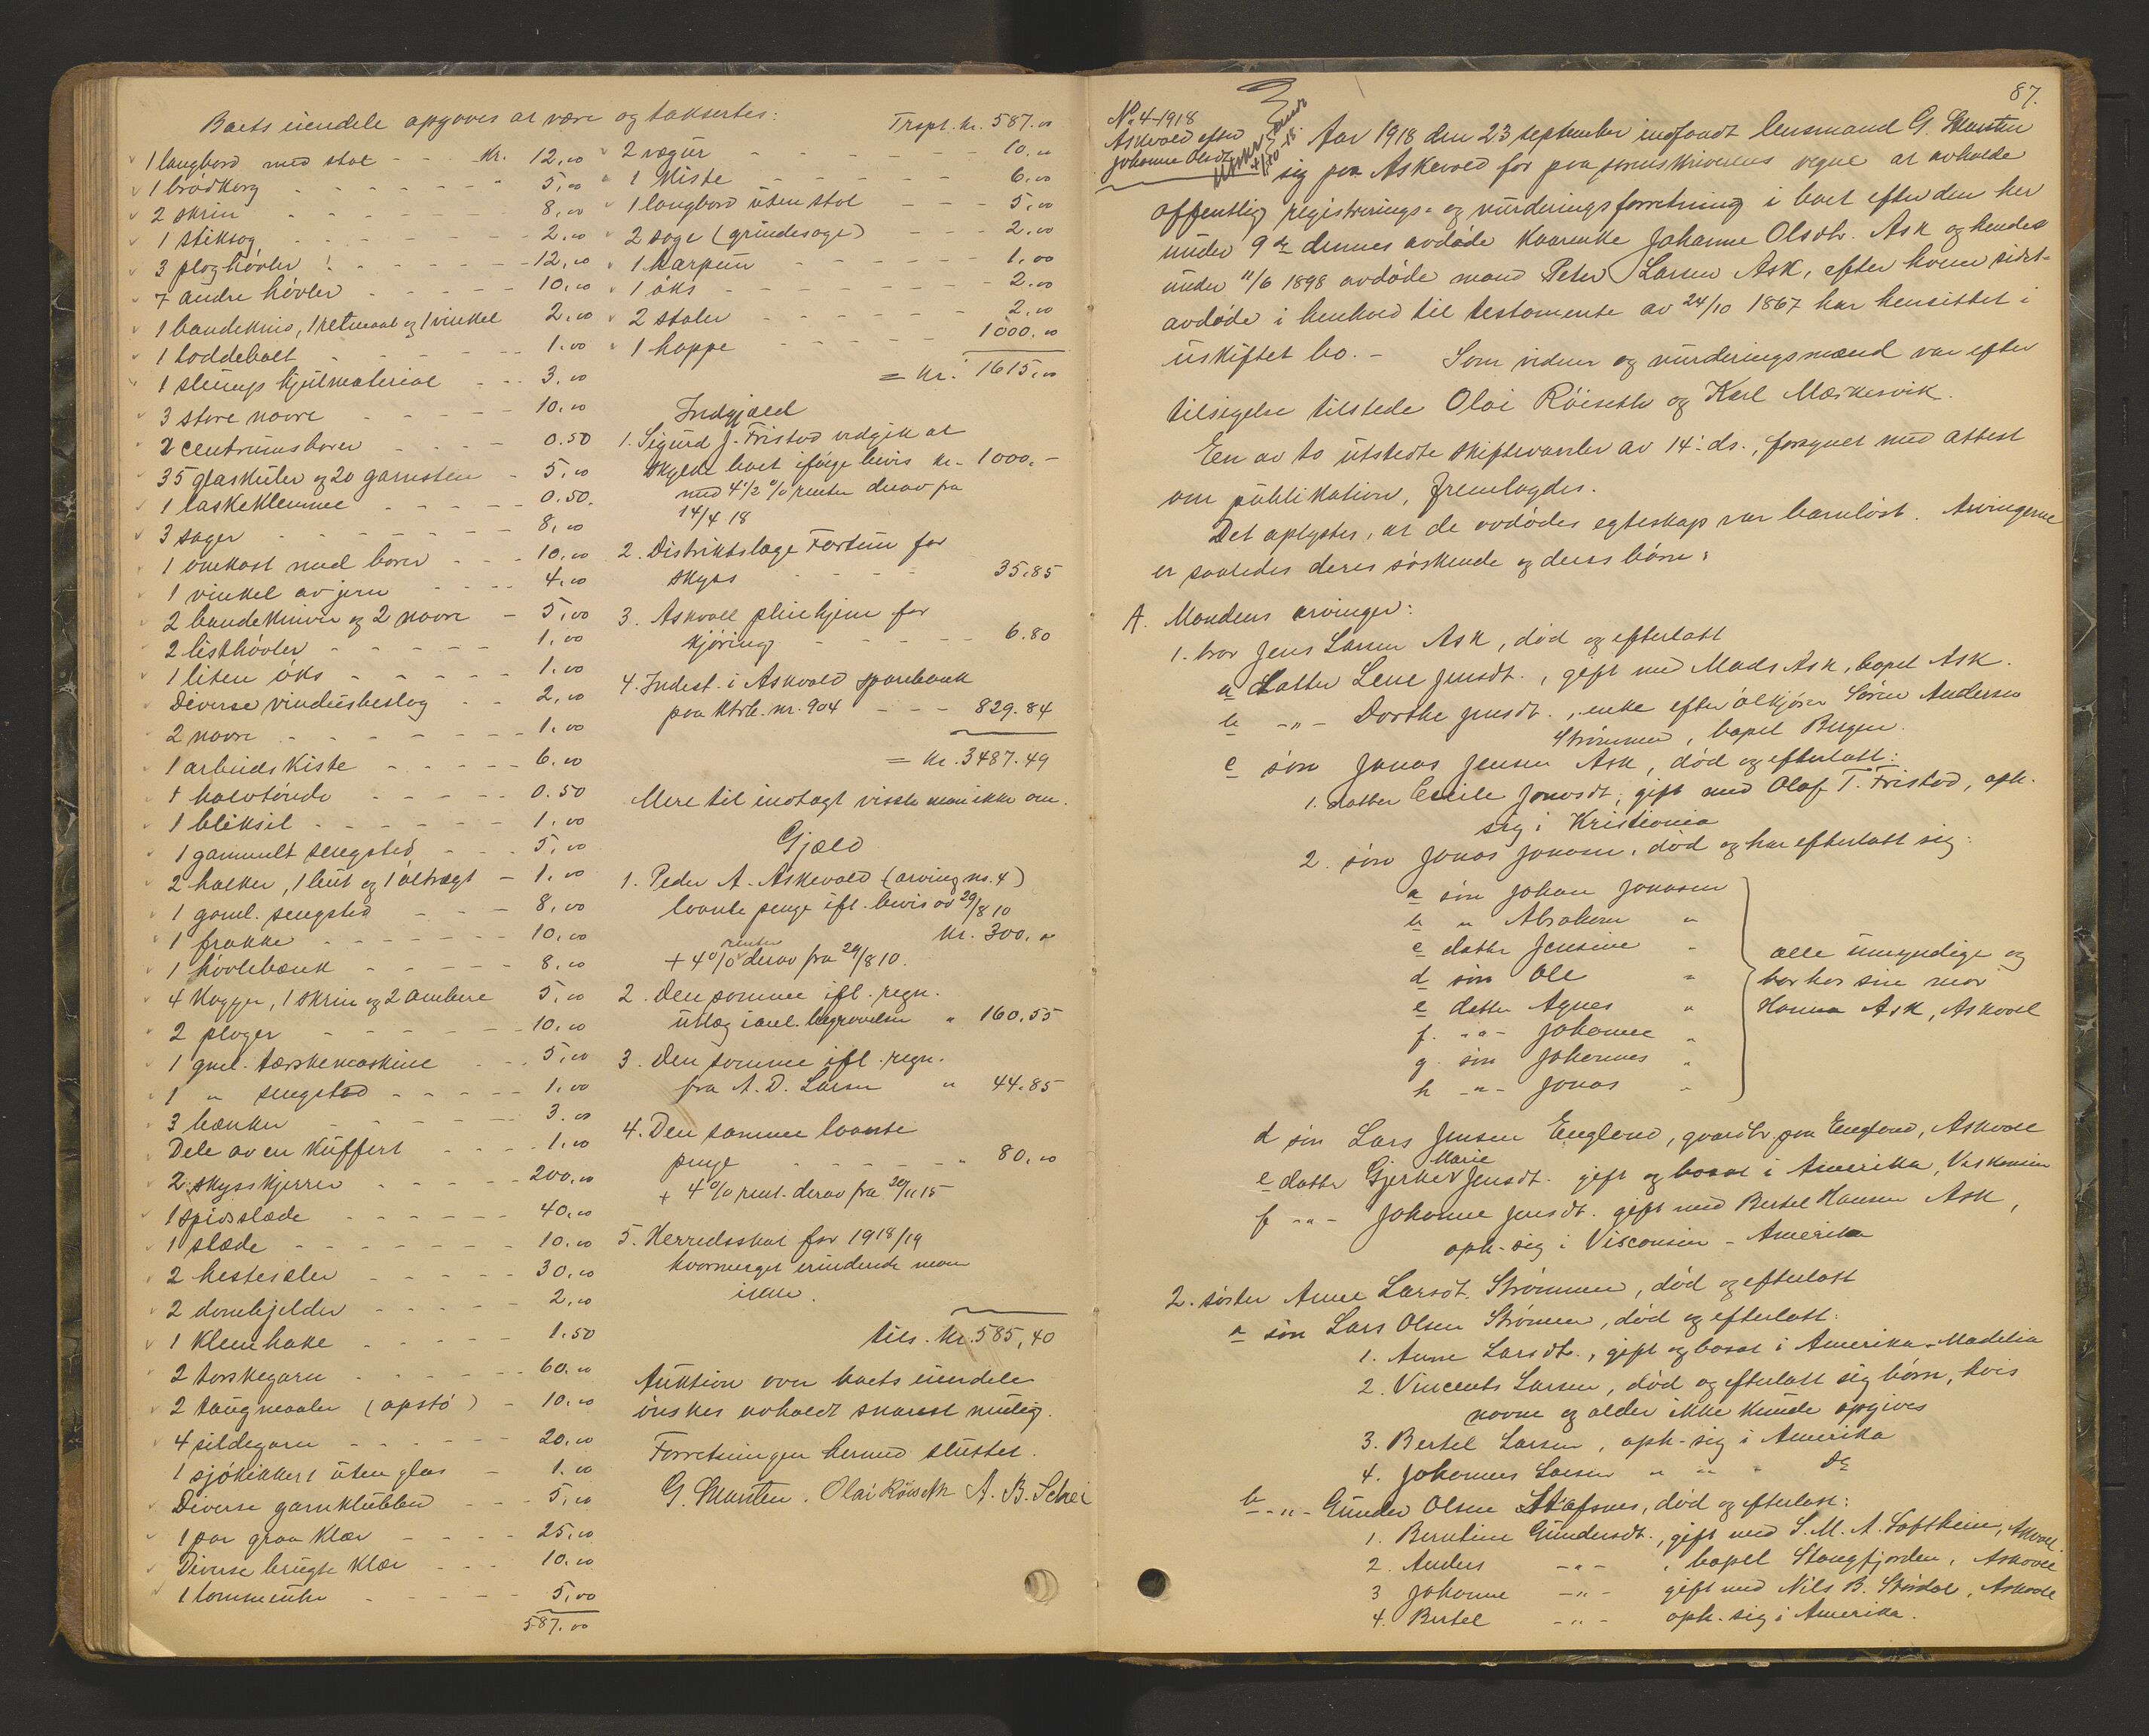 Boets eiendele opgaves at være og taksertes:
1 langbord med stol - - Kr. 12,00
1 brødkorg - - - - - 5,00
2 skrin - - - - 8,00
1 stiksag - - - - 2,00
3 ploghøvler - - - - 12,00
7 andre høvler - - - - 10,00
1 bandekniv, 1 retmaal og 1 vinkel 2,00
1 loddebolt - - - - 1,00
1 slumps hjulmateriale - - 3,00
3 store navre - - - - 10,00
2 centrumsborer - - - 0.50
35 glaskuler og 20 garnsten - 5,00
1 laskeklemme - - - - 0.50.
3 sager - - - - 8,00
1 omkast med borer - - - 10,00
1 vinkel av jern - - - - 4,00
2 bandekniver og 2 navre - 5,00
2 listhøvler - - - - - 1,00
1 liten øks - - - - - 1,00
Diverse vindusbeslag - - 2,00
2 navre - - - - - 1,00
1 arbeidskiste - - - - 6,00
1 halvtønde - - - - 0.50
1 bliksil - - - - 1,00
1 gammelt sengsted - - 5,00
2 halker, 1 but og 1 oltragt - 1,00
1 gaml. sengsted - - - 8,00
1 frakke - - - - - 10,00
1 høvlebænk - - - - 8,00
4 Kagger, 1 skrin og 2 ambere 5,00
2 ploger - - - - 10,00
1 gml. tærskemaskine - - 5,00
1 " sengsted - - - - 1,00
3 bænker - - - - 3,00
Dele av en Kuffert - - - 1,00
2 skysskjerrer - - - - 200,00
1 spidsslæde - - - - 40,00
1 slæde - - - - 10,00
2 hesteseler - - - - 30,00
2 dombjelder - - - - 2,00
1 Klemhake - - - - 1.50
2 torskegarn - - - - 60,00
2 taugmaaler (opstø) - 10,00
4 sildegarn - - - - 20,00
1 sjøkikkert uten glas - 1,00
Diverse garnklubber - - - 5,00
1 par graa Klær - - - - 25,00
Diverse brugte Klær - - - 10,00
1 lommeuhr - - - - 5,00
587,00
Trspt. kr. 587.00
2 vægur - - - - - 10.00
1 Kiste - - - - - 6.00
1 langbord uten stol - - - 5,00
2 sage (grindesage) - - - 2.00
1 harpun - - - - 1,00
1 øks - - - - - 2.00
2 stoler - - - - - 2,00
1 hoppe - - - - - 1000.00
= kr. 1615,00
Indgjæld
1. Sigurd J. Fristad vedgik at
skylde boet ifølge bevis kr. 1000.-
med 4 1/2 % renter derav fra
14/4 18
2. Distriktslæge Fortun for
skyss - - - - 35.85
3. Askvoll pleiehjem for
kjøring - - - - - 6.80
4. Indest. i Askvold sparebank
paa Ktrb. nr. 904 - - - 829.84
= kr. 3487.49
Mere til indtægt visste man ikke om.
Gjæld
1. Peder A. Askevold (arving no. 4)
laante penge ifl. bevis av 29/8 10
Kr. 300.00
+ 4% renter derav fra 29/8 10.
2. Den samme ifl. regn.
utlæg i anl. begravelsen " 160.55
3. Den samme ifl. regn.
fra A. D. Larsen " 44.85
4. Den samme laante
penge - - - - - " 80,00
+ 4% rent. derav fra 20/11 15
5. Herredsskat for 1918/19
hvormeget erindrede man
ikke.
tils. kr. 585,40
Auktion over boets eiendele
ønskes avholdt snarest mulig.
Forretningen hermed sluttet.
G. Olai Røiseth A. B. Schei
87.
No. 4-1918
Askvold efter
Johanne Olsdt.
Aar 1918 den 23 september indfandt lensmand G.
sig paa Askevold for paa sorenskriverens vegne at avholde
offentlig registrerings- og vurderingsforretning i boet efter den her
under 9de dennes avdøde Kaarenke Johanne Olsdtr. Ask og hendes
under 11/6 1898 avdøde mand Peter Larsen Ask, efter hvem sidst-
avdøde i henhold til testamente av 24/10 1867 har hensittet i
uskiftet bo. - Som vidner og vurderingsmænd var efter
tilsigelse tilstede Olai Røiseth og Karl Mærkesvik.
En av to utstedte skiftevarsler av 14. ds., forsynet med attest
om publikation, fremlagdes.
Det oplystes, at de avdødes egteskap var barnløst. Arvingerne
er saaledes deres søskende og deres børn:
A. Mandens arvinger:
1. bror Jens Larsen Ask, død og efterlatt
a datter Lene Jensdt., gift med Mads Ask, bopel Ask.
b -"- Dorthe Jensdt., enke efter ølkjører Søren Andersen
Strømmen, bopel Bergen.
c søn Jonas Jensen Ask, død og efterlatt:
1. datter Cecilie Jonasdt, gift med Olaf T. Fristad, oph.
sig i Kristiania
2. søn Jonas Jonasen, død og har efterlatt sig:
a søn Johan Jonasen
b " Abraham "
c datter Jensine "
d søn Ole "
e datter Agnes "
f. -"- Johanne "
g. søn Johannes "
h -"- Jonas "
alle umyndige og
bor hos sin mor
Hanna Ask, Askvoll
d søn Lars Jensen Englend, gaardbr. paa Englend, Askvoll
e datter Gjerke Marie Jensdt. gift og bosat i Amerika, Viskonsin
f -"- Johanne Jensdt. gift med Bertel Hansen Ask,
oph. sig i Visconsin - Amerika
2. søster Anne Larsdt. Strømmen, død og efterlatt
a søn Lars Olsen Strømmen, død og efterlatt:
1. Anne Larsdtr., gift og bosat i Amerika - Madelia
2. Vincents Larsen, død og efterlatt sig børn, hvis
navne og alder ikke kunde opgives
3. Bertel Larsen, oph. sig i Amerika
4. Johannes Larsen " " " do
b -"- Gunder Olsen Stafsnes, død og efterlatt:
1. Berntine Gundersdt., gift med S. M. A. Loftheim, Askvoll.
2. Anders -"- , bopel Stongfjorden, Askvoll
3 Johanne -"- gift med Nils B. Stordal, Askvoll
4. Bertel -"- oph. sig i Amerika.